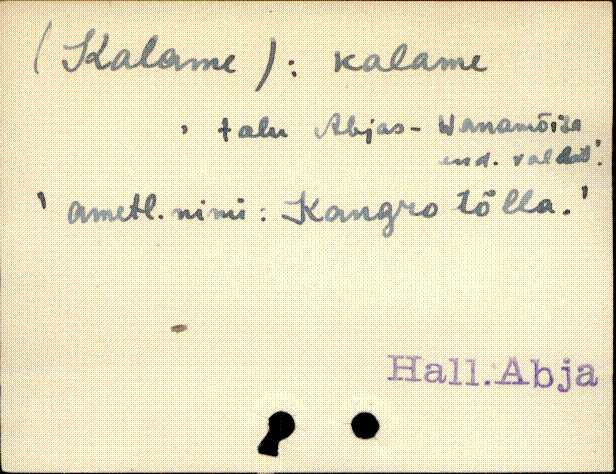 (Kalame): kalame
' talu Abjas - Wanamõisa
end. vallas.'
' ametl. nimi: Kangro Tõlla.'
Hall. Abja